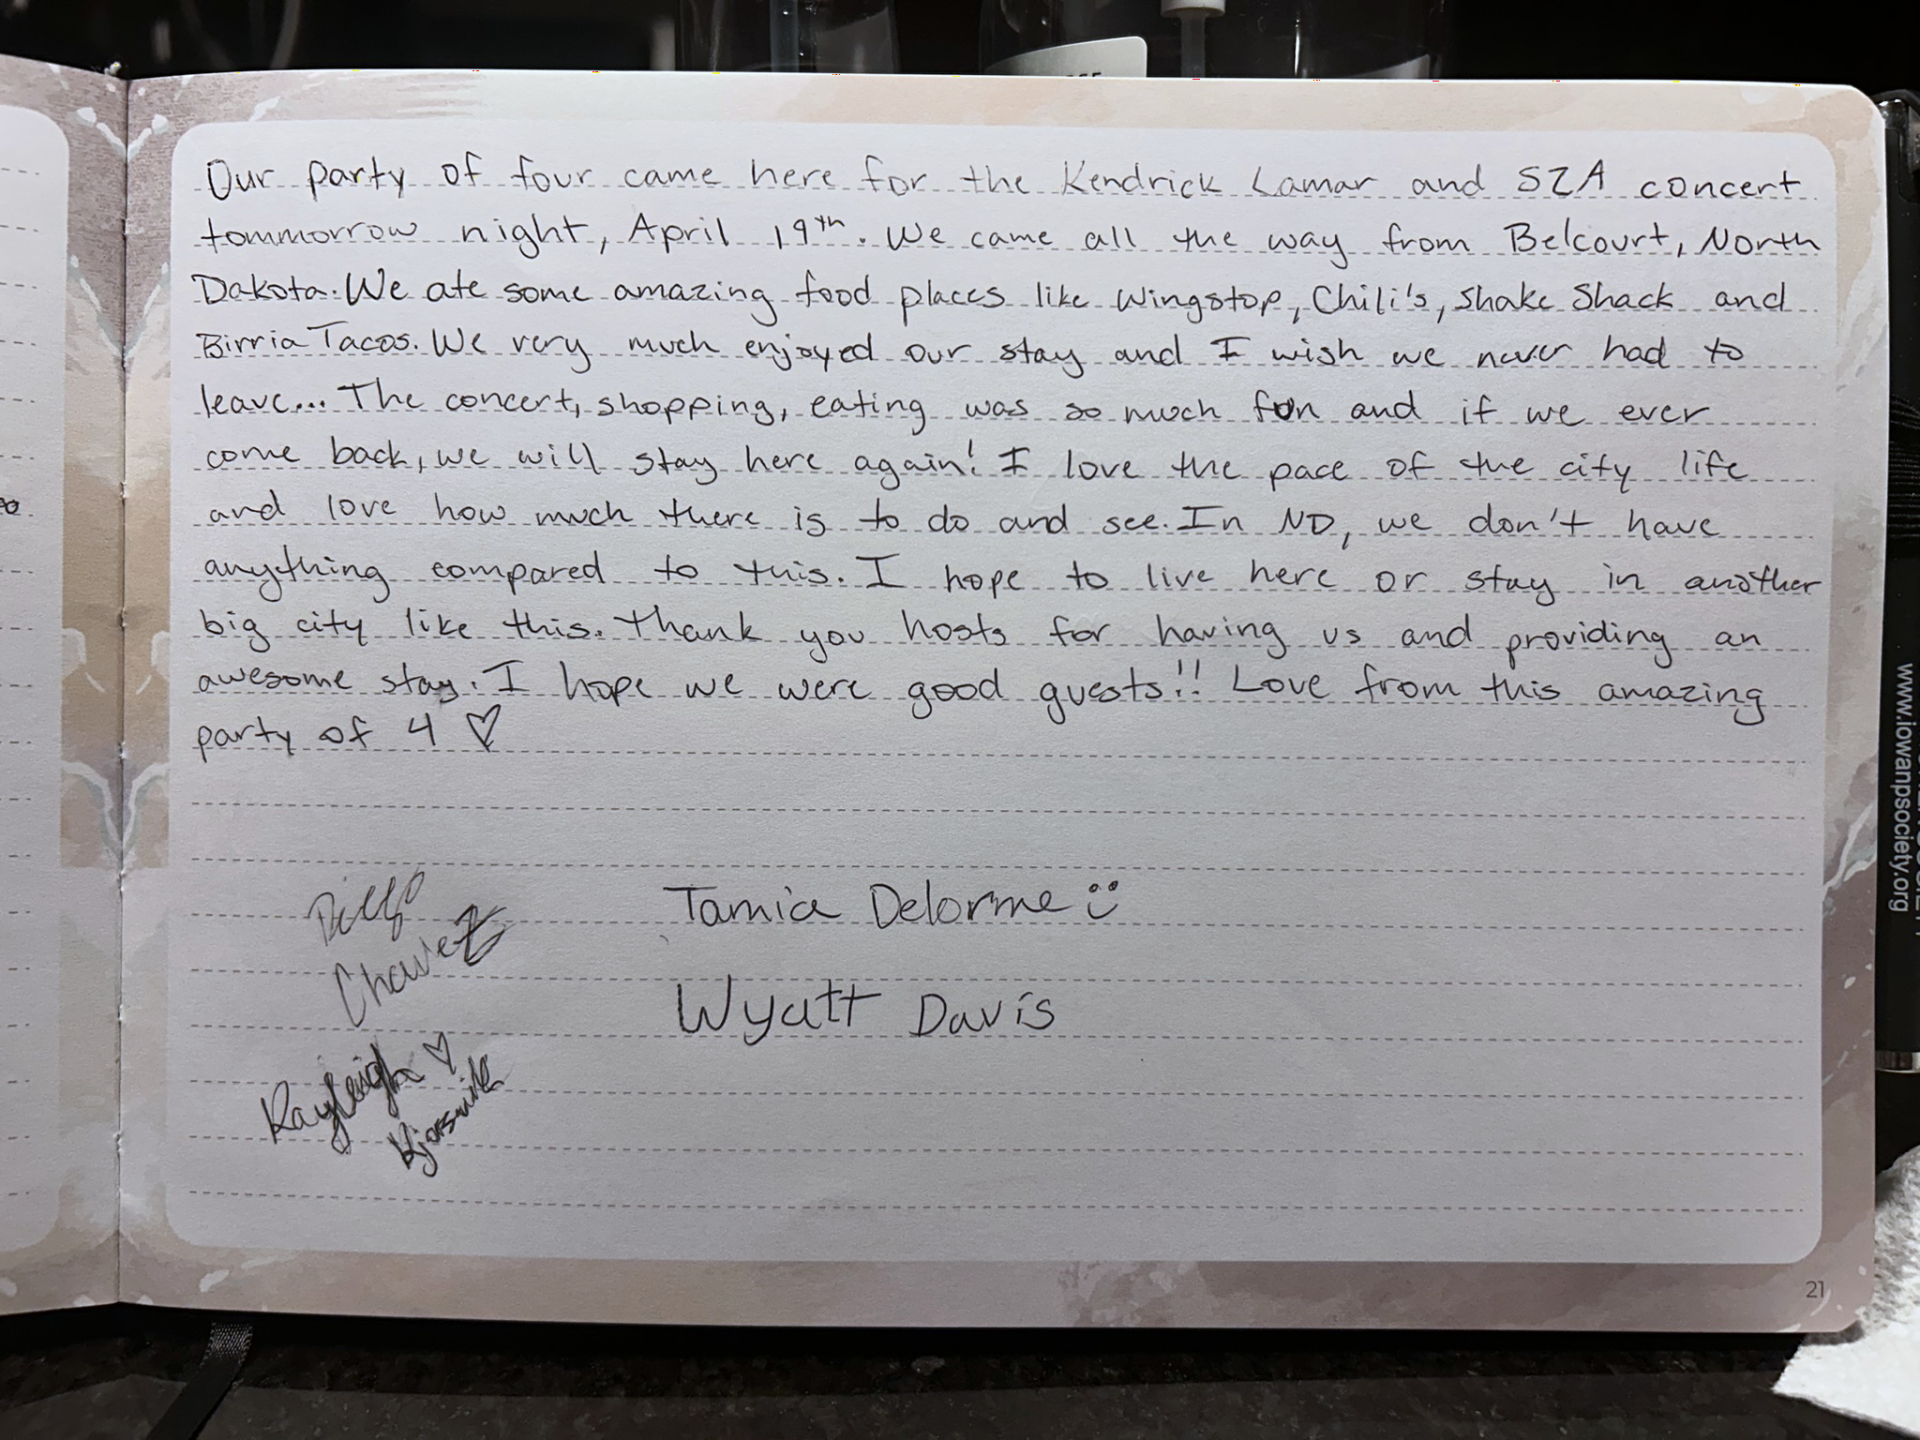 Our party of four came here for the Kendrick Lamar and SZA concert
tommorrow night, April 19th. We came all the way from Belcourt, North
Dakota. We ate some amazing food places like Wingstop, Chili's, Shake Shack and
Birria Tacos. We very much enjoyed our stay and I wish we never had to
leave... The concert, shopping, eating was so much fun and if we ever
come back, we will stay here again! I love the pace of the city life
and love how much there is to do and see. In ND, we don't have
anything compared to this. I hope to live here or stay in another
big city like this. Thank you hosts for having us and providing an
awesome stay. I hope we were good guests!! Love from this amazing
party of 4 ♡
Diego
Chavez
Tamia Delorme
Wyatt Davis
Rayleigh ♡
21
www.iowanpsociety.org